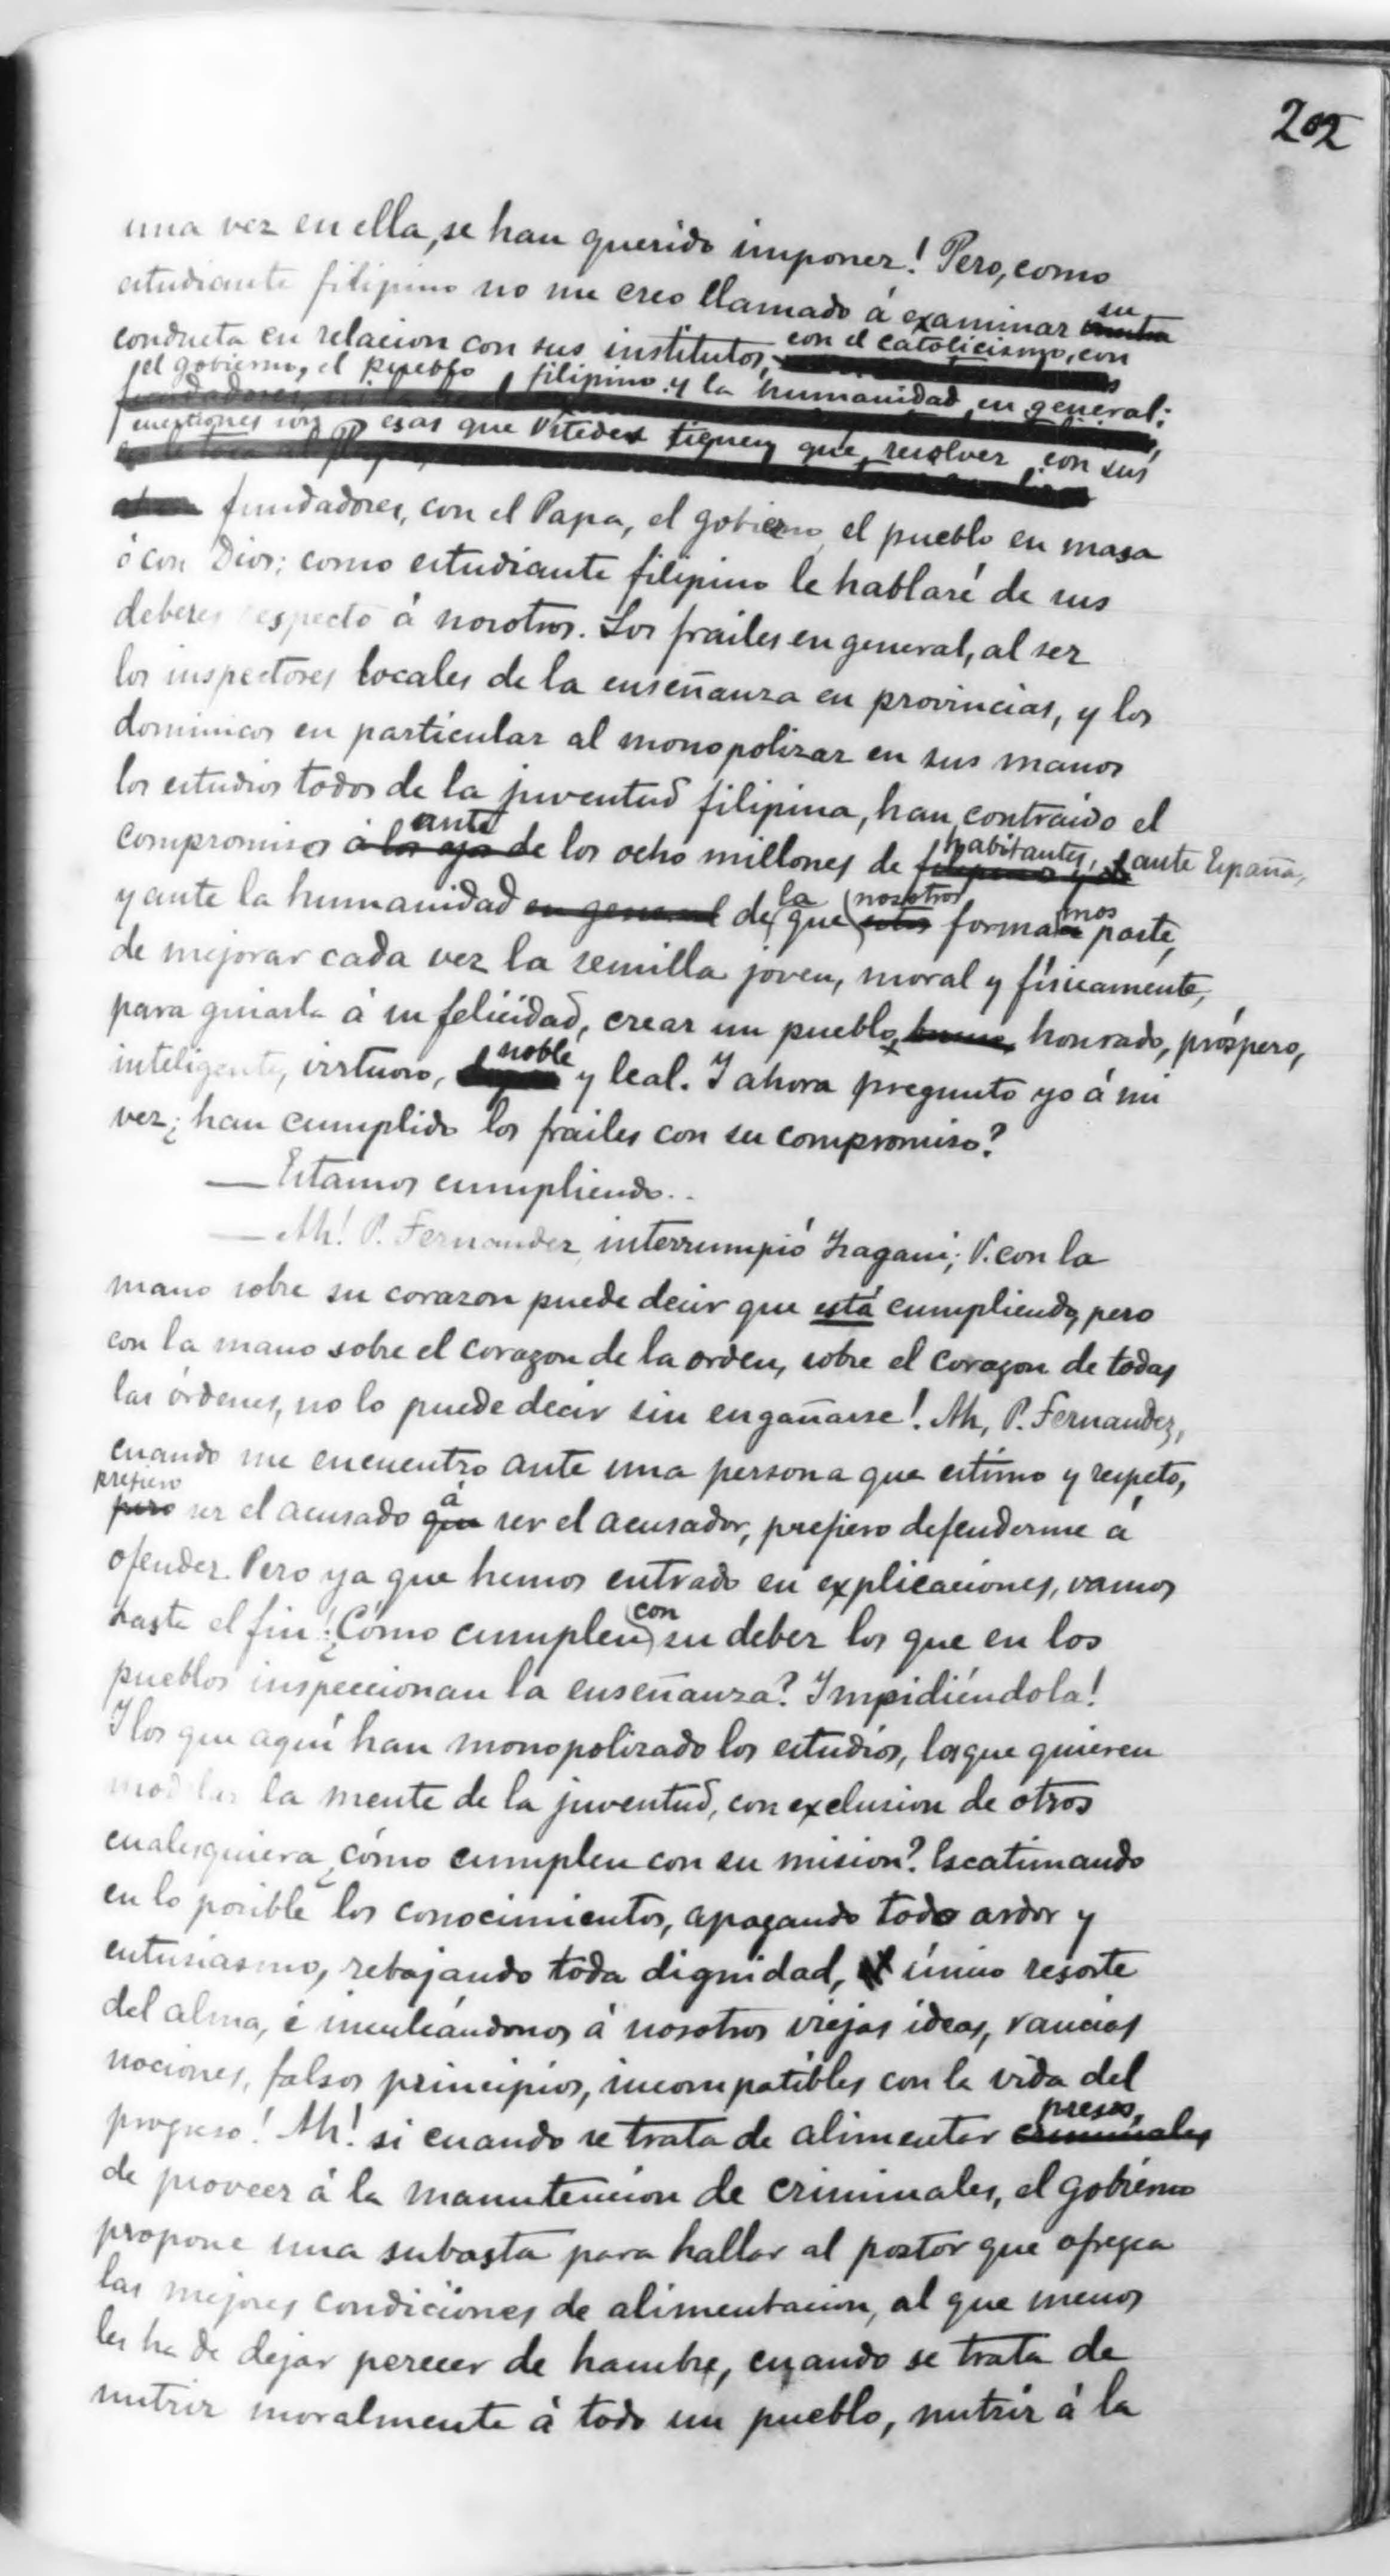 202
una vez en ella, se han querido imponer! Pero, como
estudiante filipino no me creo llamado á examinar su
conducta en relacion con sus institutos, con el catolicismo, con
el gobierno, el pueblo filipino y la humanidad en general;
cuestiones son esas que Ustedes tienen que resolver con sus
fundadores, con el Papa, el gobierno, el pueblo en masa
ó con Dios; como estudiante filipino le hablaré de sus
deberes respecto á nosotros. Los frailes en general, al ser
los inspectores locales de la enseñanza en provincias, y los
dominicos en particular al monopolizar en sus manos
los estudios todos de la juventud filipina, han contraido el
compromiso ante los ocho millones de habitantes, ante España,
y ante la humanidad de la que nosotros formamos parte,
de mejorar cada vez la semilla joven, moral y físicamente,
para guiarla á su felicidad, crear un pueblo honrado, próspero,
inteligente, virtuoso, noble y leal. I ahora pregunto yo á mi
vez ¿han cumplido los frailes con su compromiso?
— Estamos cumpliendo..
— Ah! P. Fernandez, interrumpió Isagani; V. con la
mano sobre su corazon puede decir que está cumpliendo, pero
con la mano sobre el corazon de la orden, sobre el corazon de todas
las órdenes, no lo puede decir sin engañarse! Ah, P. Fernandez,
cuando me encuentro ante una persona que estimo y respeto,
prefiero ser el acusado á ser el acusador, prefiero defenderme á
ofender. Pero ya que hemos entrado en explicaciones, vamos
hasta el fin! ¿Cómo cumplen con su deber los que en los
pueblos inspeccionan la enseñanza? Impidiéndola!
I los que aquí han monopolizado los estudios, los que quieren
modelar la mente de la juventud, con exclusion de otros
cualesquiera ¿cómo cumplen con su mision? Escatimando
en lo posible los conocimientos, apagando todo ardor y
entusiasmo, rebajando toda dignidad, único resorte
del alma, é inculcándonos á nosotros viejas ideas, rancias
nociones, falsos principios, incompatibles con la vida del
progreso! Ah! si cuando se trata de alimentar presos,
de proveer á la manutencion de criminales, el gobierno
propone una subasta para hallar al postor que ofrezca
las mejores condiciones de alimentacion, al que menos
les ha de dejar perecer de hambre, cuando se trata de
nutrir moralmente á todo un pueblo, nutrir á la